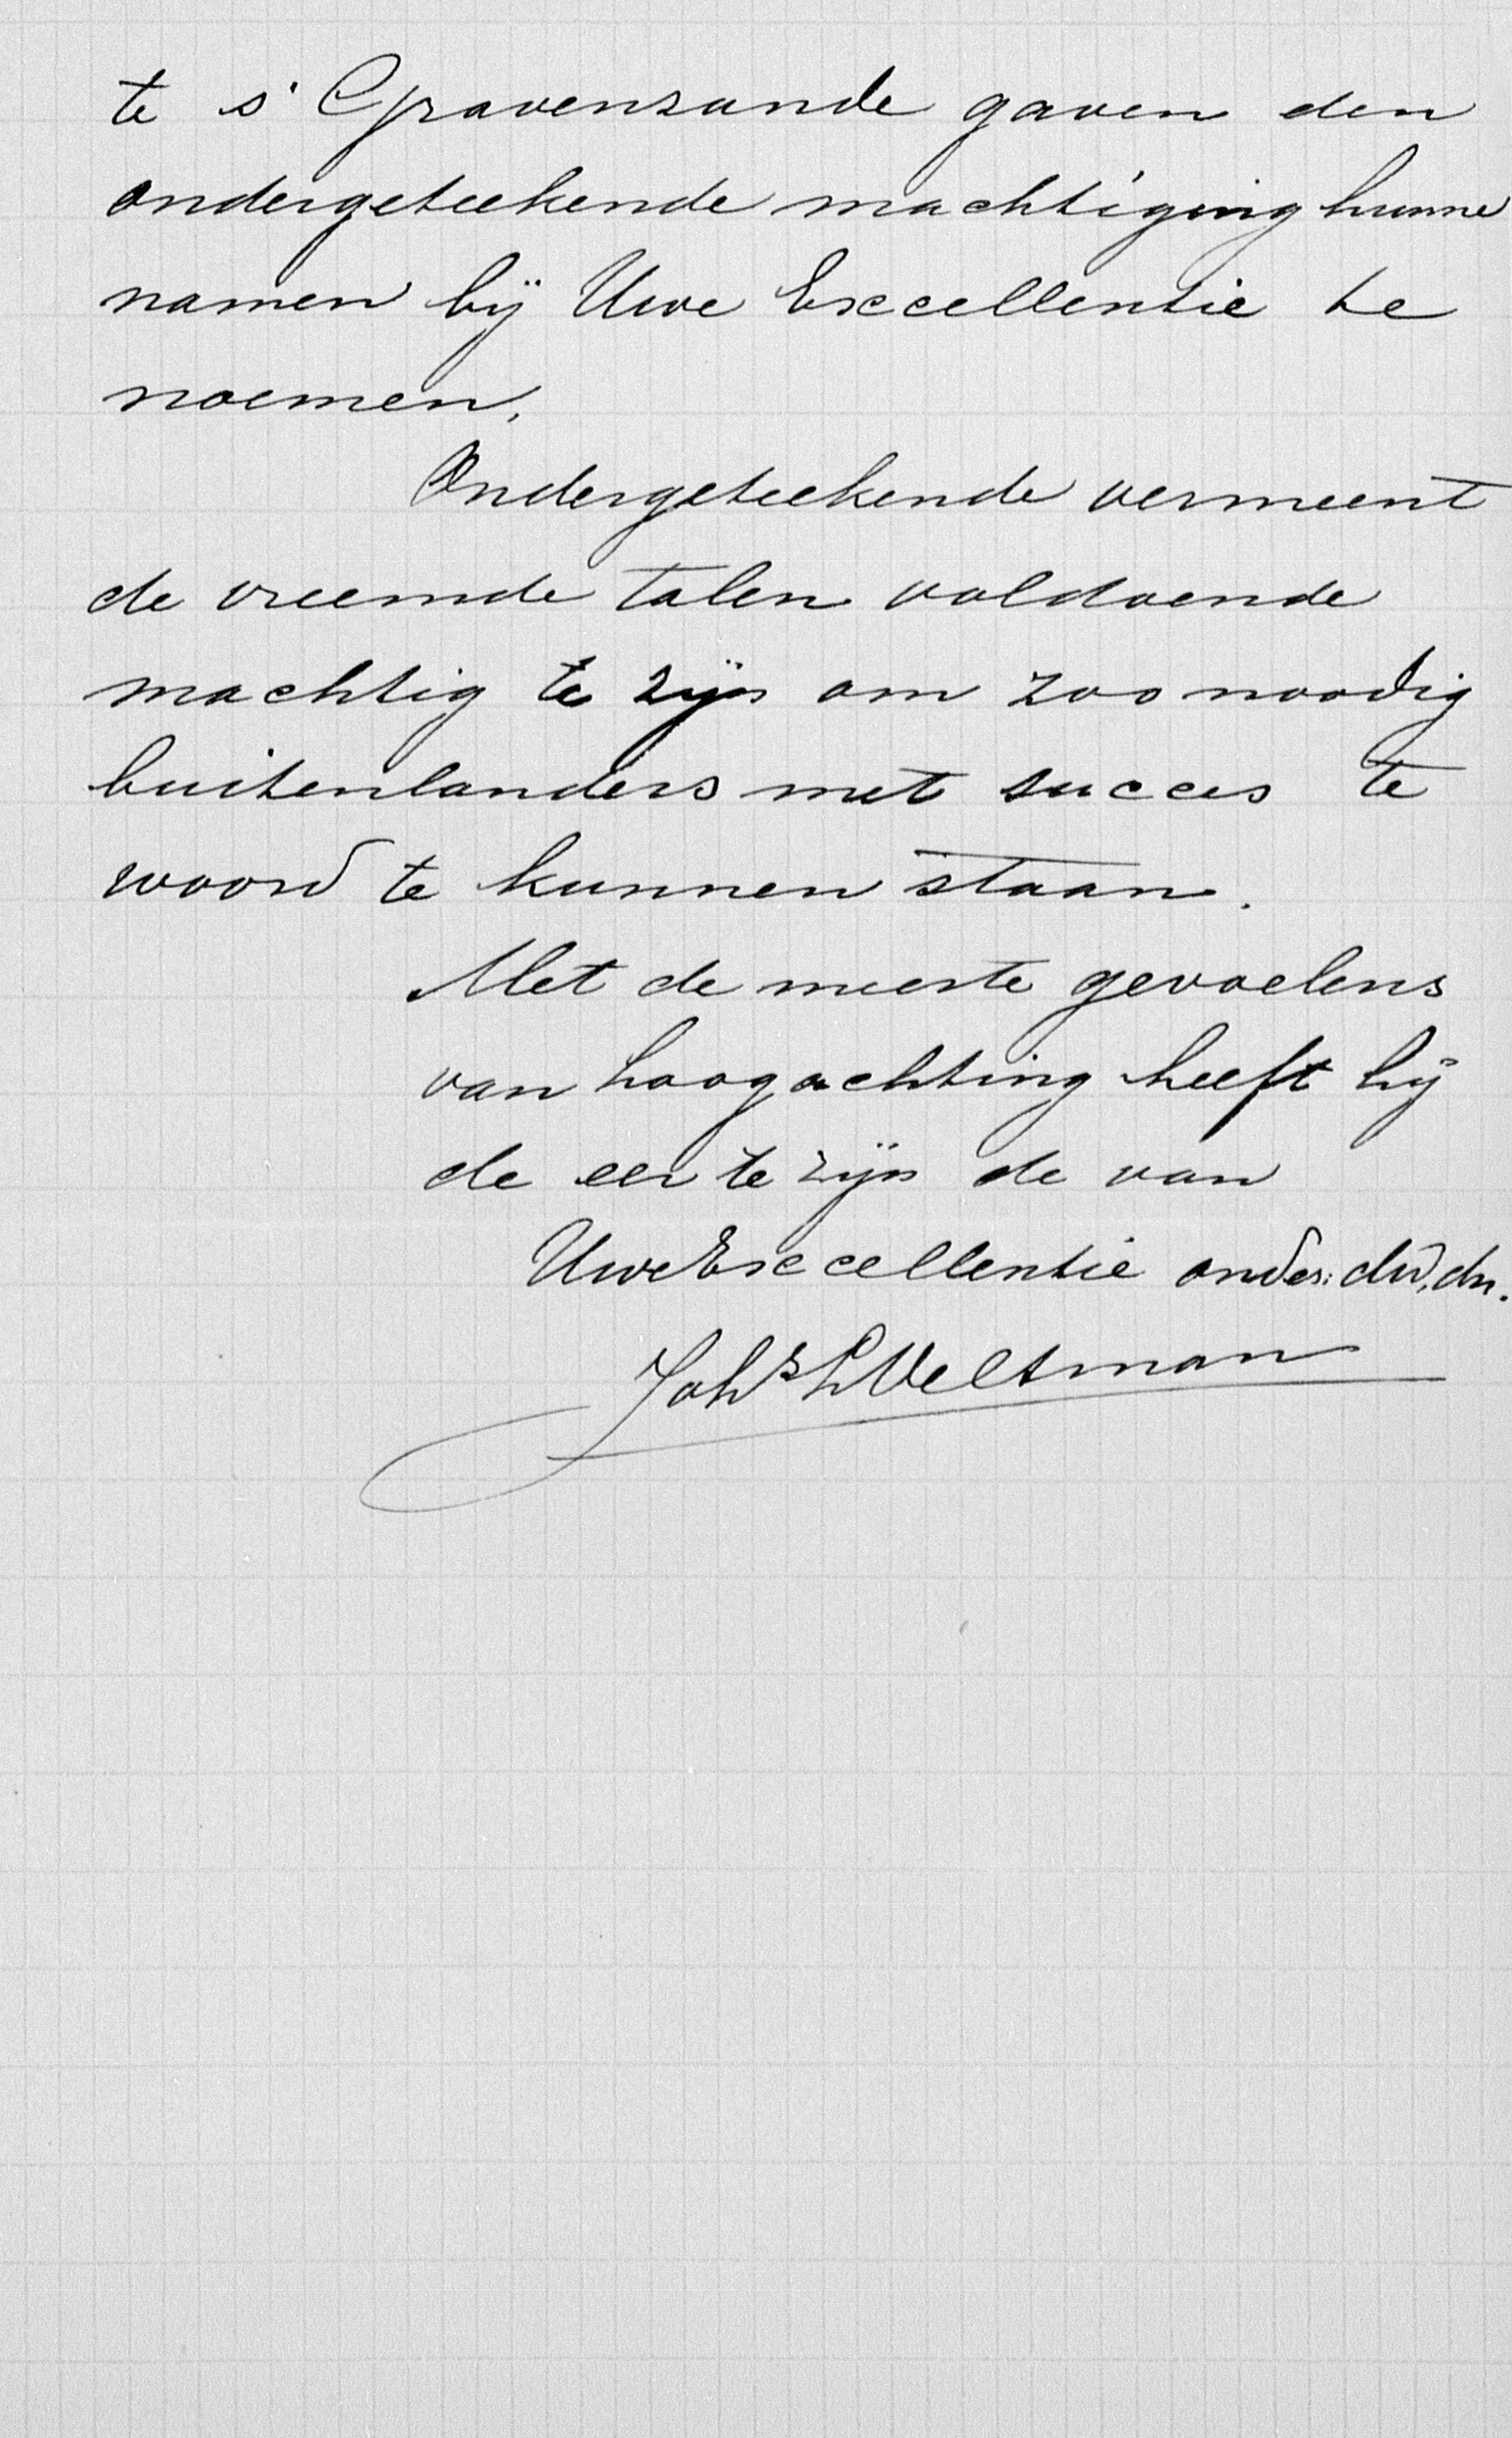 te s' Gravenzande gaven den
ondergeteekende machtiging hunne
namen bij Uwe Excellentie te
noemen.
Ondergeteekende vermeent
de vreemde talen voldoende
machtig te zijn om zoo noodig
buitenlanders met succes te
woord te kunnen staan.
Met de meeste gevoelens
van hoogachting heeft hij
de eer te zijn de van
Uwe Excellentie onder: dw, dn.
Johs L Veltman